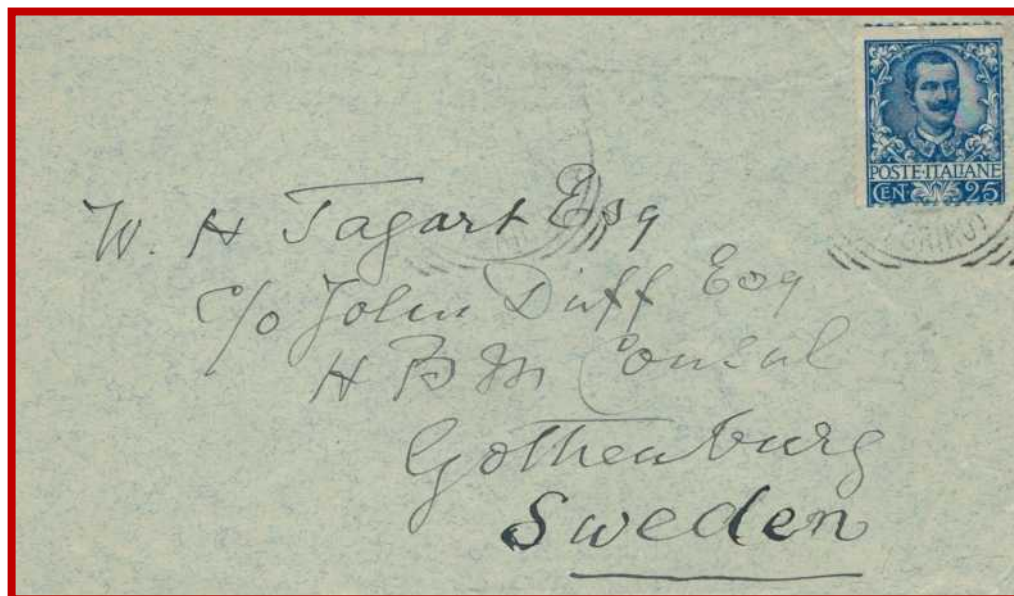 POSTE·ITALIANE
CEN· 25
W. H Tagart Esq
c/o John Duff Esq
H B M Consul
Gothenburg
Sweden